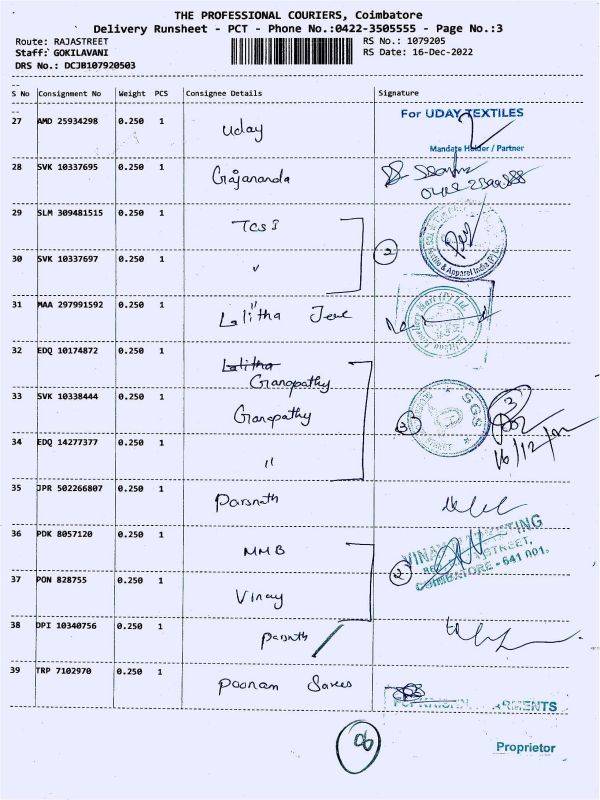 THE PROFESSIONAL COURIERS, Coimbatore
Delivery Runsheet - PCT - Phone No.:0422-3505555 - Page No.:3
Route: RAJASTREET RS No.: 1079205
Staff: GOKILAVANI RS Date: 16-Dec-2022
DRS No.: DCJB107920503
S No Consignment No Weight PCS Consignee Details Signature
27 AMD 25934298 0.250 1 Uday For UDAY TEXTILES
Mandate Holder / Partner
28 SVK 10337695 0.250 1 Gajananda
29 SLM 309481515 0.250 1 TCS I
30 SVK 10337697 0.250 1 " 2
Textile & Apparel India (P) Ltd
31 MAA 297991592 0.250 1 Lalitha Jewe
Jewellery Mart (P) Ltd
32 EDQ 10174872 0.250 1 Lalitha
Ganapathy
33 SVK 10338444 0.250 1 Ganapathy 3 SGS 3
34 EDQ 14277377 0.250 1 " 16/12/22
35 JPR 502266807 0.250 1 Parsnath
36 PDK 8057120 0.250 1 MMB
STREET,
COIMBATORE - 641 001.
37 PON 828755 0.250 1 Vinay 2
38 DPI 10340756 0.250 1 Parsnath
39 TRP 7102970 0.250 1 Poonam Sarees
06
Proprietor